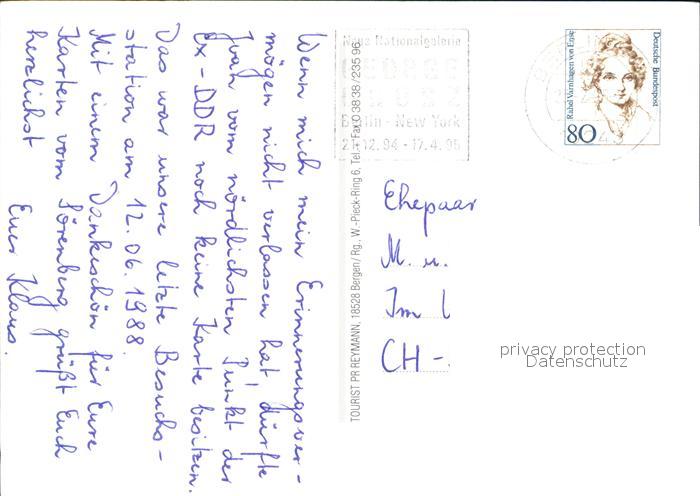 Wenn mich mein Erinnerungsver-
mögen nicht verlassen hat, dürfte
Ihr vom nördlichsten Punkt der
Ex-DDR noch keine Karte besitzen.
Das war unsere letzte Besuchs-
station am 12.06.1988.
Mit einem Dankeschön für Eure
Karten vom Sörenberg grüßt Euch
herzlichst
Euer Klaus.
TOURIST PR REYMANN, 18528 Bergen/Rg., W.-Pieck-Ring 6, Tel. + Fax 03838/23596
Neue Nationalgalerie
GEORGE
GROSZ
Berlin - New York
21.12.94 - 17.4.95
Deutsche Bundespost
Rahel Varnhagen von Ense
80
Ehepaar
M. u.
Im
CH-
privacy protection
Datenschutz